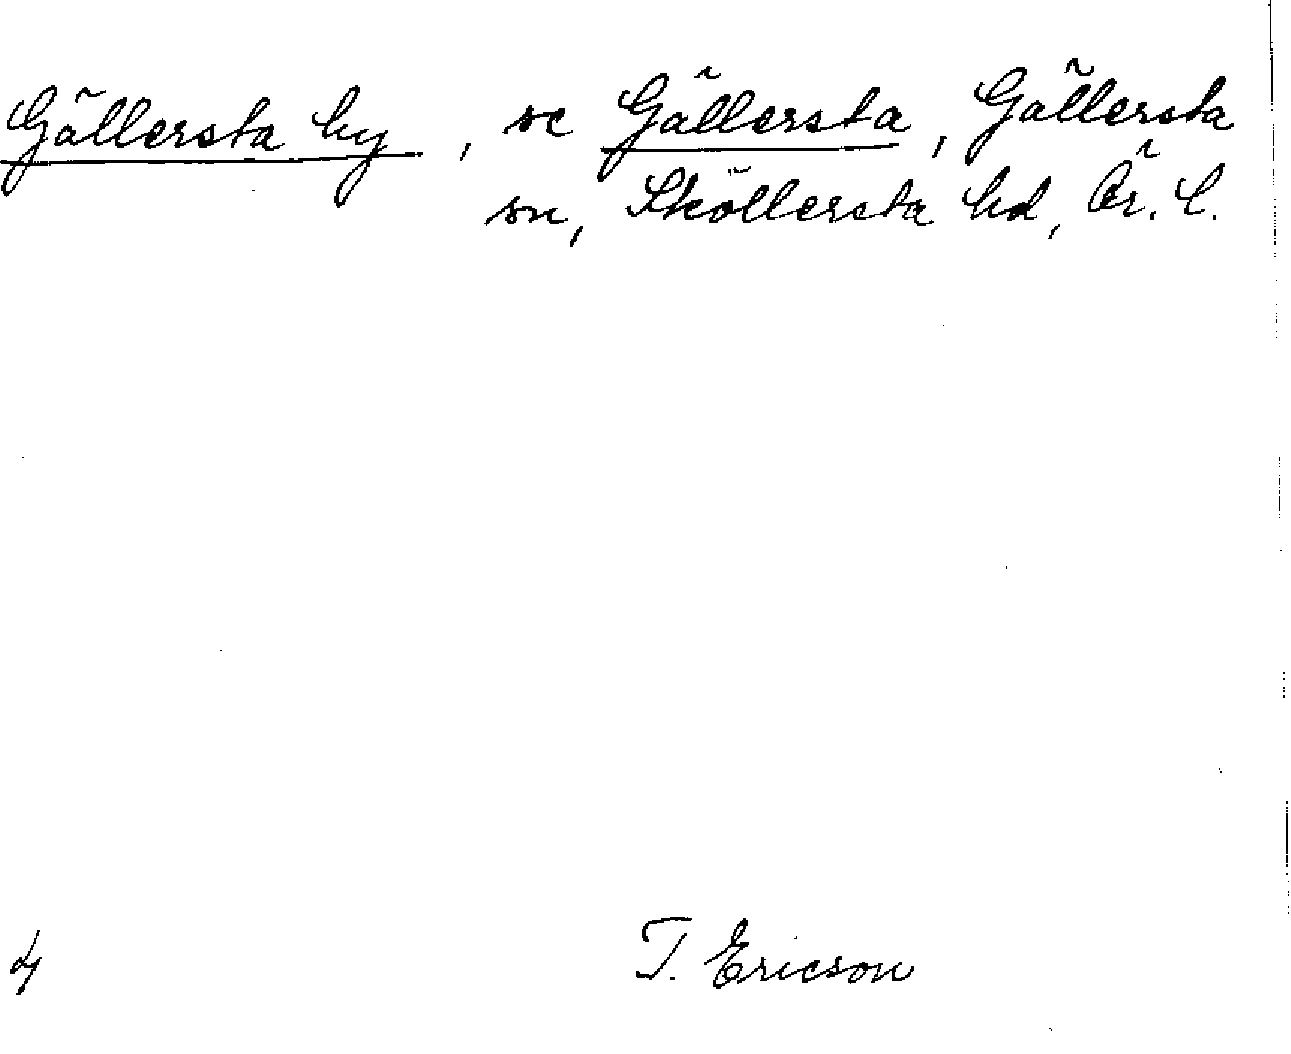 Gällersta by, se Gällersta, Gällersta
sn, Sköllersta hd, Ör. l.
4 T. Ericson